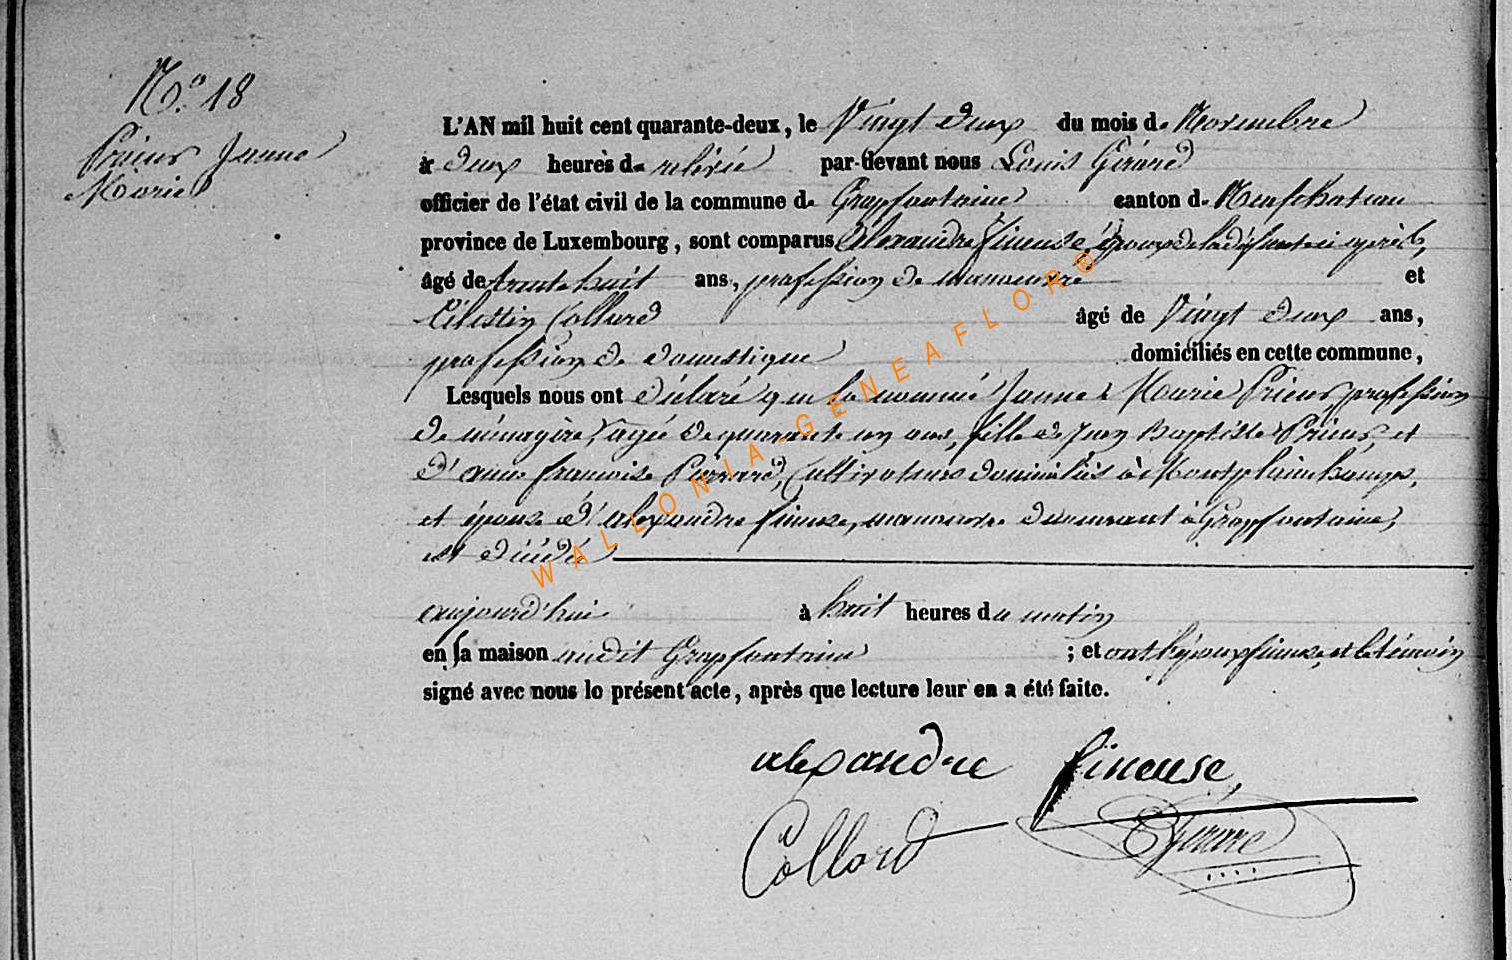 N.° 18
Prieur Jeanne
Marie
L'AN mil huit cent quarante-deux, le Vingt deux du mois de Novembre
à deux heures de relévée par-devant nous Louis Gérard
officier de l'état civil de la commune de Grapfontaine canton de Neufchateau
province de Luxembourg, sont comparus Alexandre fineuse, époux de la défunte ci après,
âgé de trente huit ans, profession de manoeuvre et
Célestin Collard âgé de Vingt deux ans,
profession de domestique domiciliés en cette commune,
Lesquels nous ont déclaré que la nommée Jeanne Marie Prieur, profession
de ménagère, agée de quarante un ans, fille de Jean Baptiste Prieur, et
d'anne françoise Pierrard, Cultivateurs domiciliés à Montplainchamps,
et épouse d'alexandre fineuse, manoeuvre demeurant à Grapfontaine,
est décédée
aujourd'hui à huit heures du matin
en sa maison audit Grapfontaine ; et ont l'époux fineuse, et le témoin
signé avec nous le présent acte, après que lecture leur en a été faite.
alexandre fineuse
Collard Gérard
WALLONIA-GENEAFLOR®